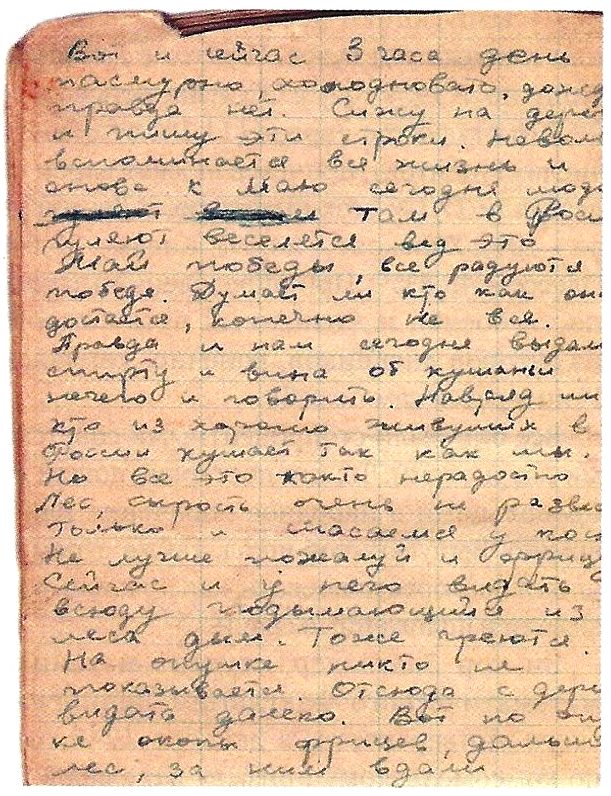 Вот и сейчас 3 часа день
пасмурно, холодновато, дожд
правда нет. Сижу на дере
и пишу эти строки. Невол
вспоминается вся жизнь и
снова к Маю сегодня
там в Росс
гуляют веселятся вед это
Май победы, все радуются
победе. Думает ли кто как она
достается, конечно не все.
Правда и нам сегодня выдал
спирту и вина об кушаньи
нечего и говорить. Навряд ли
кто из хорошо живущих в
России кушает так как мы.
Но все это както нерадостно
Лес, сырость очень не развес
Только и спасаемся у кос
Не лучше пожалуй и фрице
Сейчас и у него видать
всюду подымающийся из
леса дым. Тоже греются.
На опушке никто не
показывается. Отсюда с дере
видать далеко. Вот по опуш
ке окопы фрицев, дальше
лес, за ним вдали